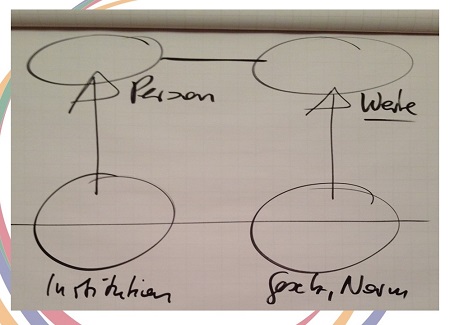 Person
Werte
Institution
Gesetz, Norm